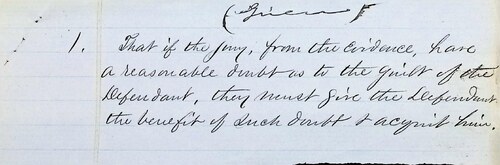 (Given)
1. That if the Jury, from the Evidence, have
a reasonable doubt as to the guilt of the
Defendant, they must give the Defendant
the benefit of such doubt & acquit him.